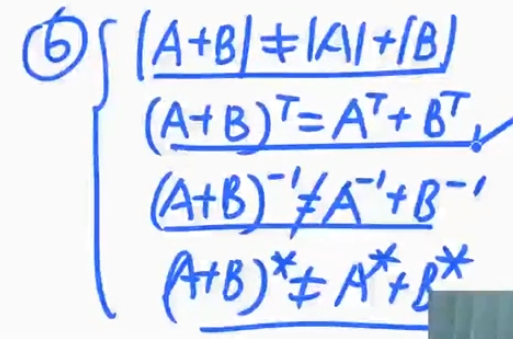 ⑥ |A+B|≠|A|+|B|
(A+B)ᵀ=Aᵀ+Bᵀ ✓
(A+B)⁻¹≠A⁻¹+B⁻¹
(A+B)*≠A*+B*